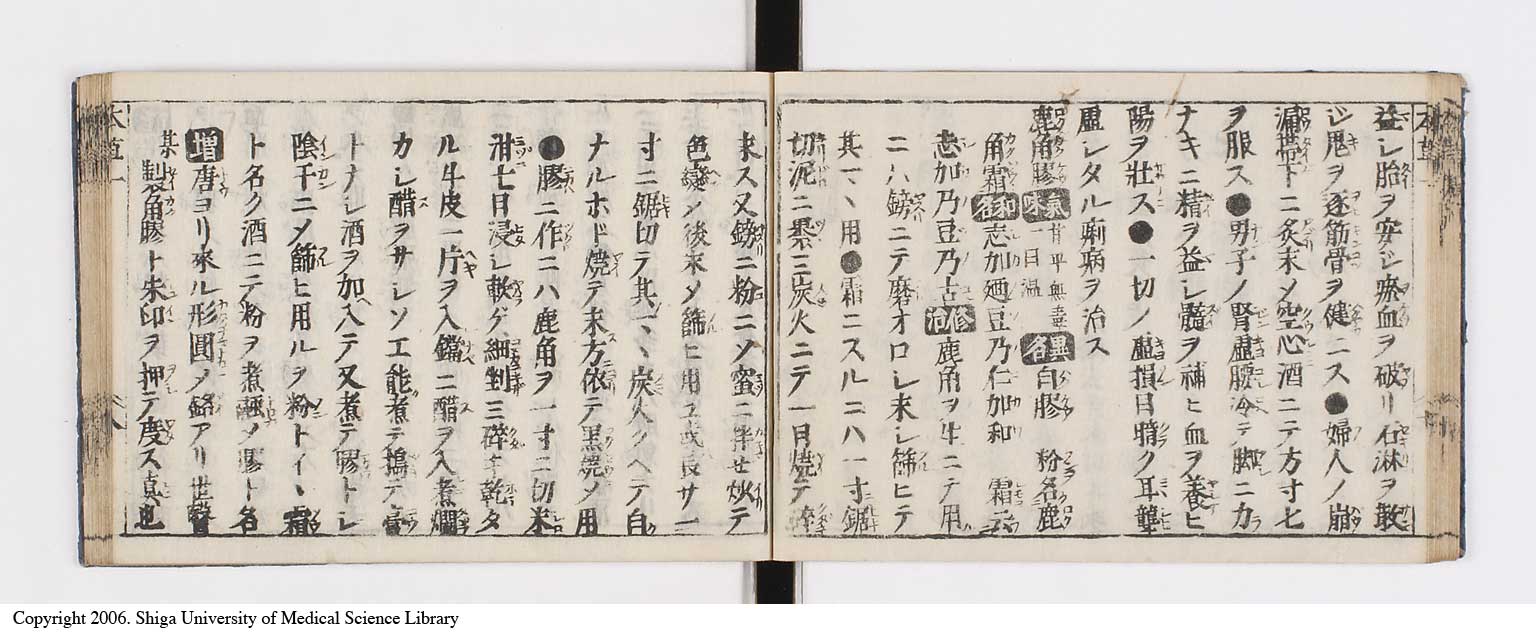 益シ胎ヲ安ジ瘀血ヲ破リ石淋ヲ散
ジ鬼ヲ逐筋骨ヲ健ニス●婦人ノ崩
漏帯下ニ炙末メ空心酒ニテ方寸七
ヲ服ス●男子ノ腎虚腰冷テ脚ニカ
ナキニ精ヲ益シ髓ヲ補ヒ血ヲ養ヒ
陽ヲ壮ス●一切ノ虚損目暗ク耳聾
虚シタル痢病ヲ治ス
鹿角膠 氣味 甘平無毒 一曰温 異名 白膠 粉名鹿
角霜 和名 志加廼豆乃仁加和 霜云
志加乃豆乃古 修治 鹿角ヲ生ニテ用
ニハ鎊ニテ磨オロシ末シ篩ヒテ
其一丶用●霜ニスルニハ一寸鋸
切泥ニ裹三炭火ニテ一日焼テ
末ス又鎊ニ粉ニソ蜜ニ拌セ炒テ
色変メ後末メ篩ヒ用ユ或長サ一
寸ニ鋸切テ其一丶炭火ノヘテ白
ナルホド焼テ末方依テ黒焼メ用
●膠ニ作ニハ鹿角ヲ一寸ニ切米
泔七日浸シ軟ゲ細剉三碎 乾タ
ル牛皮一片ヲ入鐺ニ醋ヲ入煮爛
カシ醋ヲサシソエ能煮テ搗テ膏
トナシ酒ヲ加ヘ入テ又煮テ膠トシ
陰干ニメ篩ヒ用ルヲ粉トイヽ霜
ト名ク酒ニテ粉ヲ煮融メ膠ト名
増 唐ヨリ來ル形圓メ銘アリ世醫
某製角膠ト朱印ヲ押テ度ス真也
本草一
八